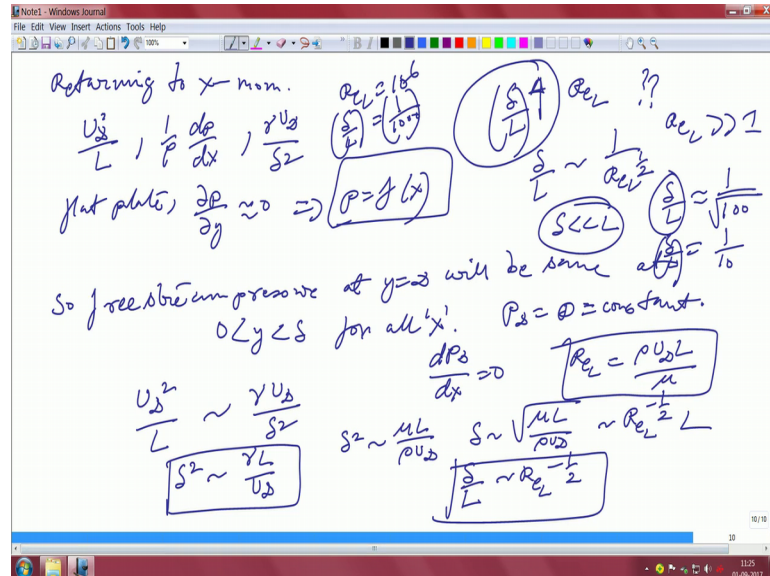 Note1 - Windows Journal
File Edit View Insert Actions Tools Help
100%
Returning to x-mom.
Re_L = 10^6
(δ/L) = (1/1000)
(δ/L) ↑ Re_L ??
Re_L >> 1
U_∞^2/L , 1/ρ dp/dx , γU_∞/δ^2
δ/L ~ 1/Re_L^{1/2}
(δ/L) ≈ 1/√100
flat plate, ∂p/∂y ≈ 0 ⇒ p = f(x)
δ << L
(δ/L) = 1/10
So freestream pressure at y=∞ will be same at
0<y<δ for all 'x'. P_∞ = P = constant.
dP_∞/dx = 0
Re_L = ρU_∞L/μ
U_∞^2/L ~ γU_∞/δ^2
δ^2 ~ μL/ρU_∞ δ ~ √(μL/ρU_∞) ~ Re_L^{-1/2} L
δ^2 ~ γL/U_∞
δ/L ~ Re_L^{-1/2}
10/10
10
11:25
01-09-2017